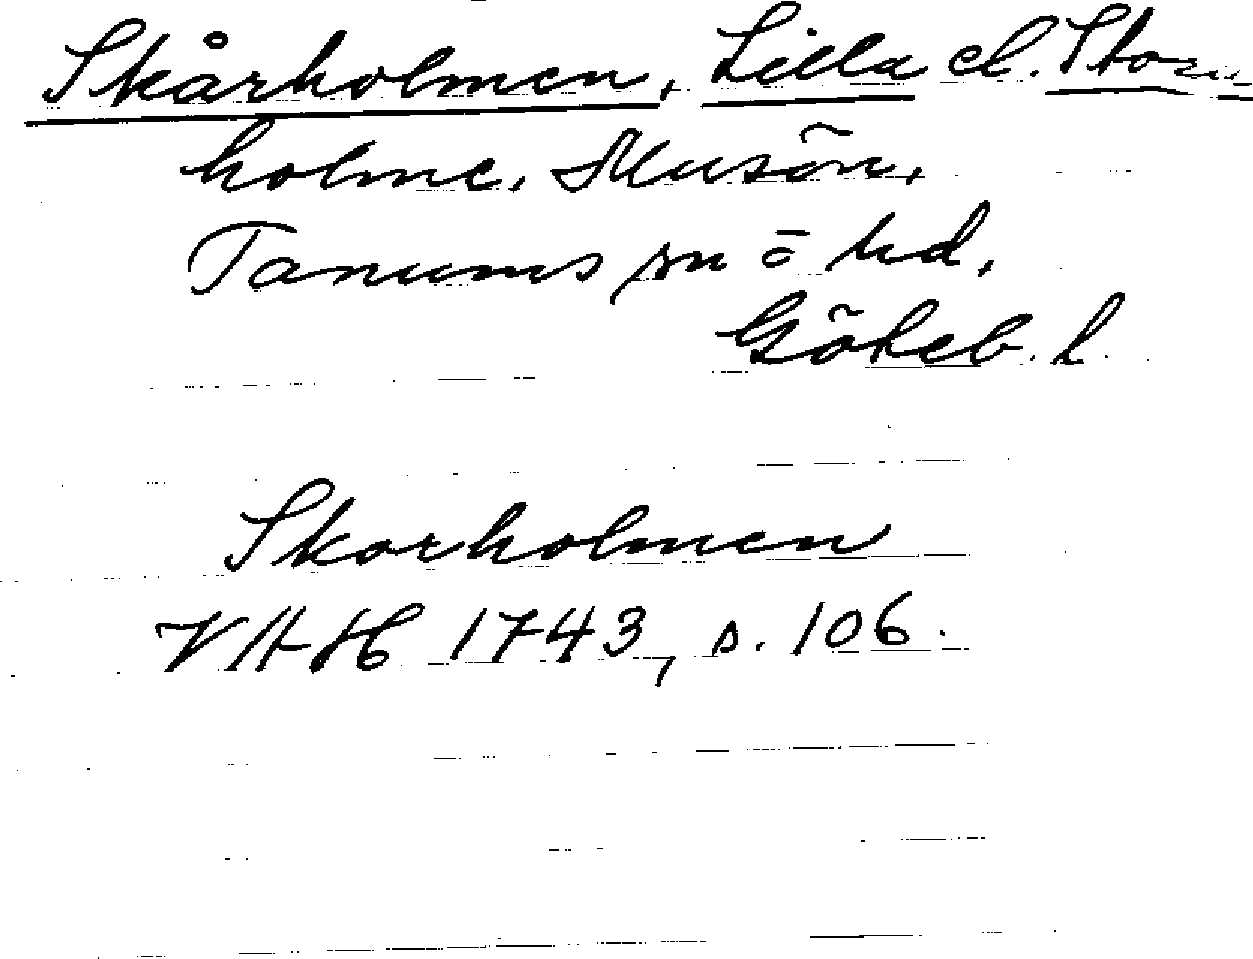 Skårholmen, Lilla el. Stora,
holme, Musön,
Tanums sn o hd,
Göteb. l.
Skorholmen
VAH 1743, s. 106.